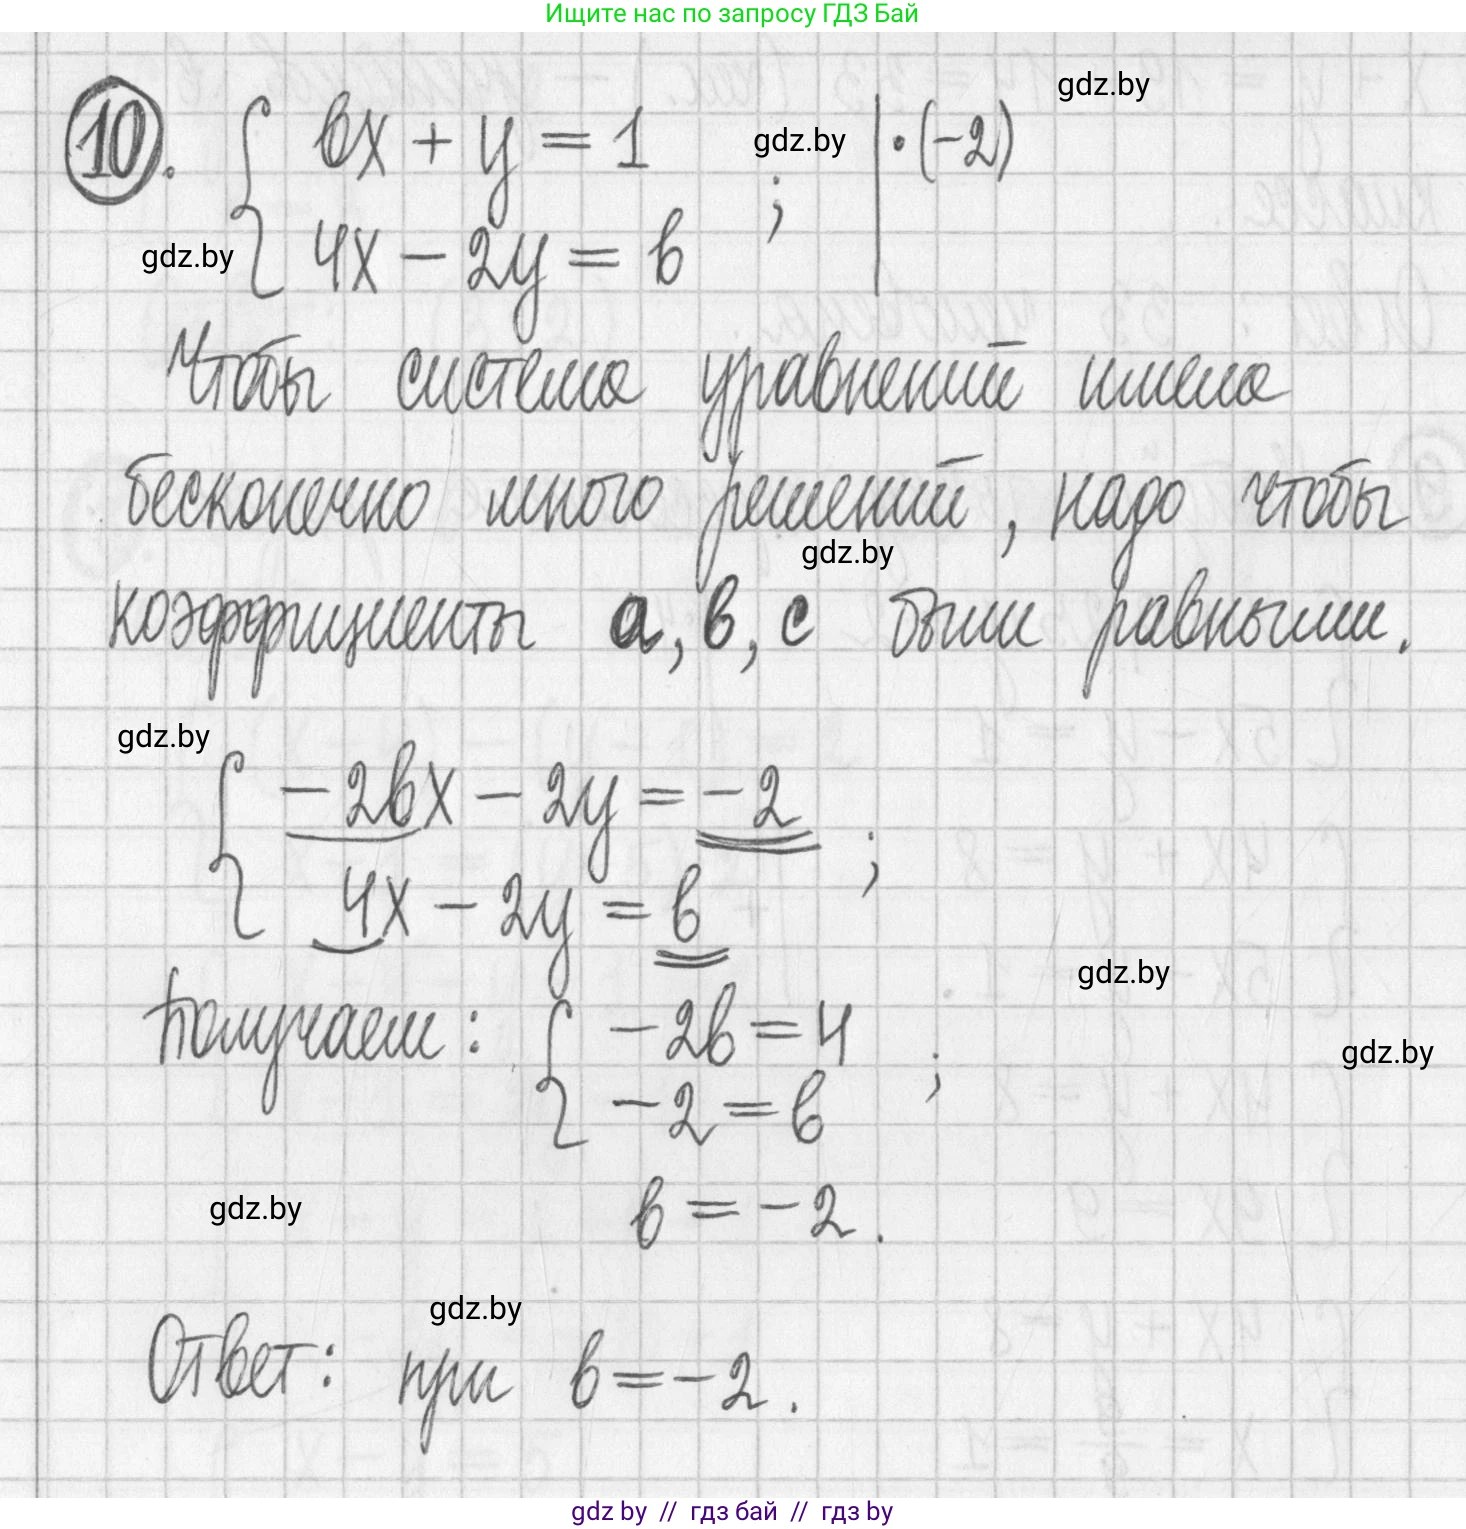 Ищите нас по запросу ГДЗ Бай
gdz.by
10. { bx + y = 1 gdz.by | · (-2)
gdz.by 4x - 2y = b ;
Чтобы система уравнений имела
бесконечно много решений, надо чтобы
gdz.by
коэффициенты a, b, c были равными.
gdz.by
{ -2bx - 2y = -2
4x - 2y = b ;
gdz.by
Получаем: { -2b = 4
-2 = b ;
gdz.by
b = -2.
gdz.by
gdz.by
Ответ: при b = -2.
gdz by // гдз бай // гдз by